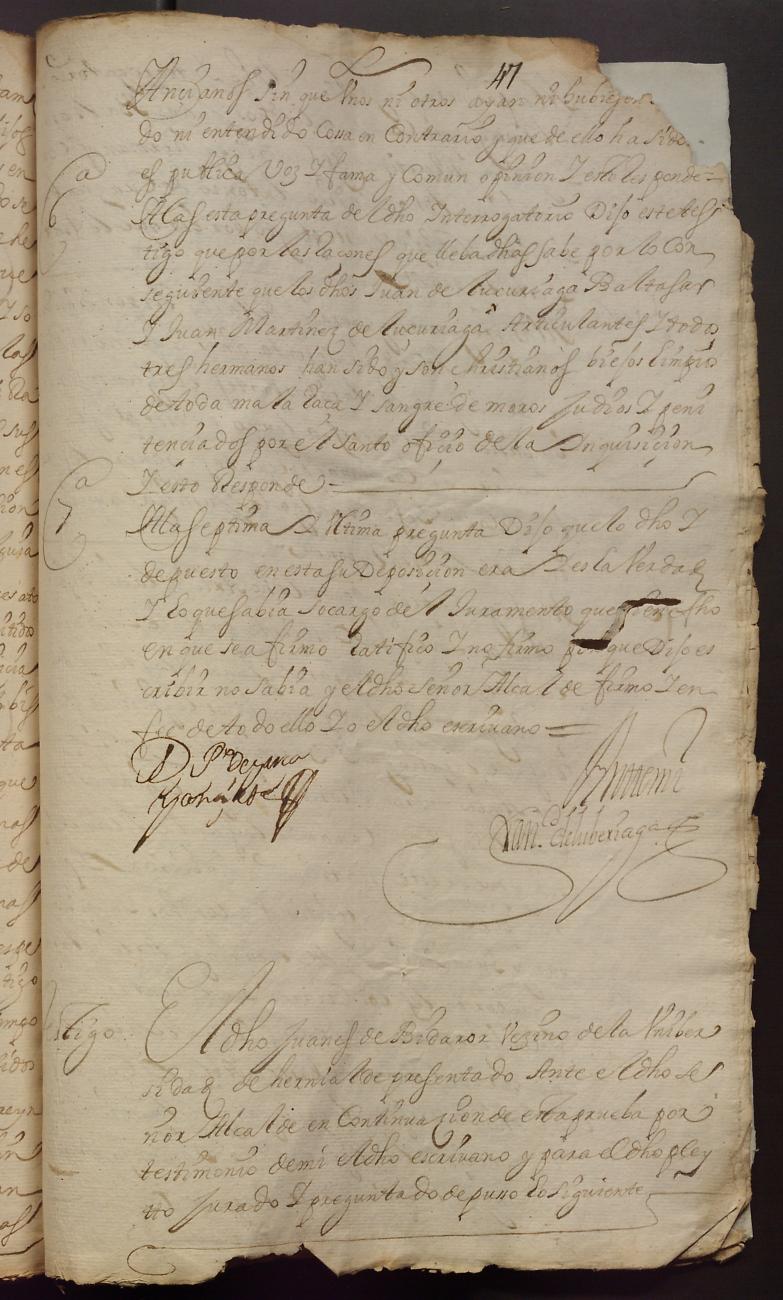 47
Ancianos sin que Unos ni otros ayan ni hubiesen
do ni entendido Cossa en Contrario y que de ello ha sido
es publica Voz I fama y Comun opinion I esto responde =
6ª
Ala sesta pregunta del dho Interrogatorio Dijo este tes
tigo que por las raçones que lleba dhas sabe por lo Con
seguiente que los dhos Juan de Yucuriaga Baltasar
I Juan Martinez de Yucuriaga Articulantes I todos
tres hermanos han sido y son christianos biejos limpios
de toda mala Raça I sangre de moros Judios I peni
tenciados por el santo oficio de la Inquisicion
I esto Responde
7ª
Ala septima I Ultima pregunta Dijo que lo dho I
depuesto en esta su Deposicion era I es la Verdad
I lo que sabia socargo del Juramento que dho
en que se afirmo Ratifico I no firmo porque Dijo es
cribir no sabia y el dho señor Alcalde firmo I en
fee de todo ello Io el dho escrivano =
Ante mi
tigo
El dho Juanes de Bidaror Vezino de la Vniber
sidad de hernialde presentado Ante el dho se
ñor Alcalde en Continuacion de esta prueba por
testimonio de mi el dho escrivano y para el dho pley
tto Jurado I preguntado depusso lo siguiente